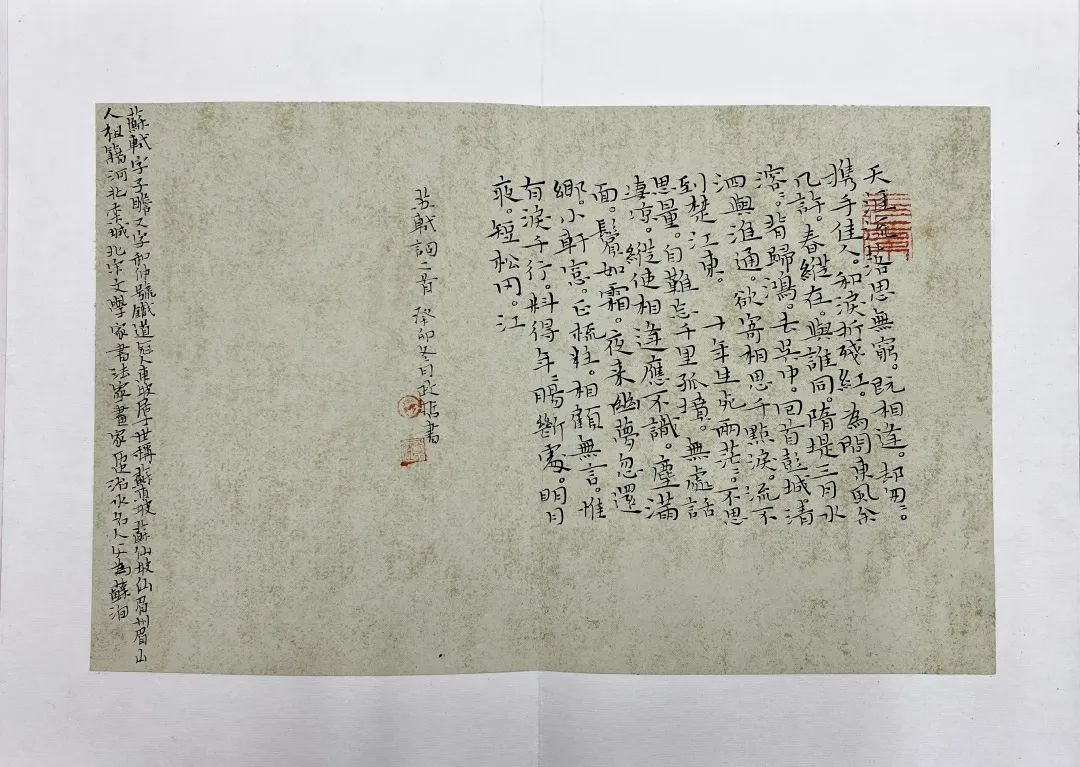 天涯流落思無窮。既相逢。却匆々。
携手佳人。和淚折殘紅。為問東風余
几許。春縱在。與誰同。隋堤三月水
溶々。背歸鴻。去吳中。回首彭城。清
泗與淮通。欲寄相思千點淚。流不
到楚江東。 十年生死兩茫々。不思
思量。自難忘千里孤墳。無處話
凄凉。縱使相逢應不識。塵滿
面。鬢如霜。夜来幽夢忽還
鄉。小軒窓。正梳妝。相顧無言。惟
有淚千行。料得年々腸斷處。明月
夜。短松冈。江
蘇軾詞二首 癸卯冬月政 書
蘇軾字子瞻又字和仲號鐵道冠人東坡居士世稱蘇東坡蘇仙坡仙眉州眉山
人祖籍河北欒城北宋文學家書法家畫家歷治水名人父為蘇洵